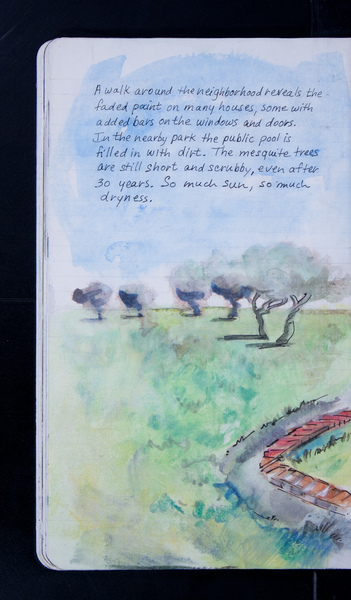 A walk around the neighborhood reveals the
faded paint on many houses, some with
added bars on the windows and doors.
In the nearby park the public pool is
filled in with dirt. The mesquite trees
are still short and scrubby, even after
30 years. So much sun, so much
dryness.